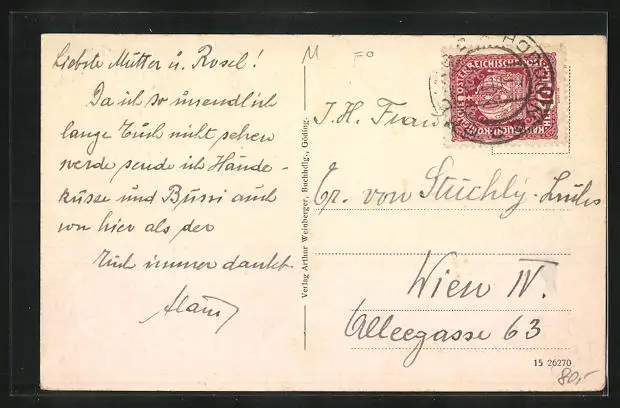 Liebste Mutter u. Rosel!
Da ich so unendlich
lange Euch nicht sehen
werde sende ich Hände-
küsse und Bussi auch
von hier als der
Euch immer dankb.
M
FO
Verlag Arthur Weinberger, Buchhdlg., Göding.
ÖSTERREICHISCHE
I. H. Frau
Gr. von Stuchly-
Wien IV.
Alleegasse 63
15 26270
80,-